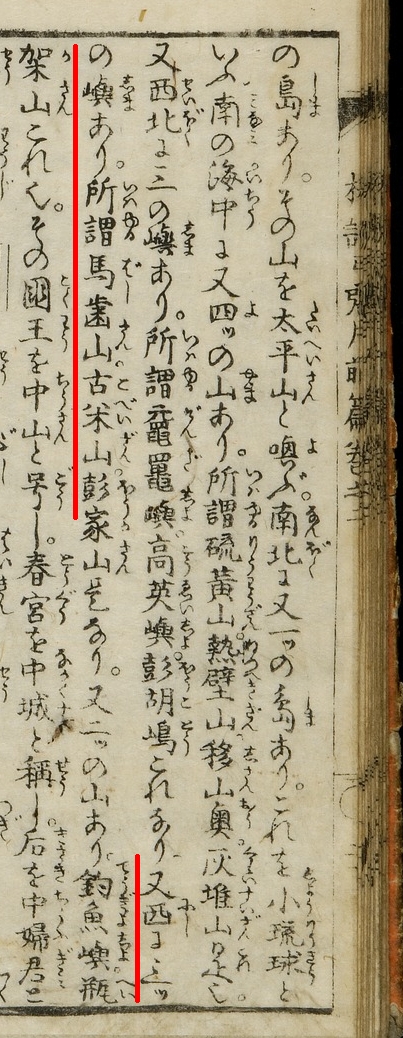 の島あり。その山を太平山と喚ぶ。南北に又一ッの島あり。これを小琉球と
いふ南の海中に又四ッの山あり。所謂硫黄山。熱壁山。移山奥。灰堆山是也
又西北に三の嶼あり。所謂黿鼊嶼。高英嶼。彭胡嶋これなり。又西に三ッ
の嶼あり。所謂馬歯山。古米山。彭家山是なり。又二ッの山あり。釣魚嶼。瓶
架山これ也。その國王を中山と号し。春宮を中城と稱し。后を中婦君と